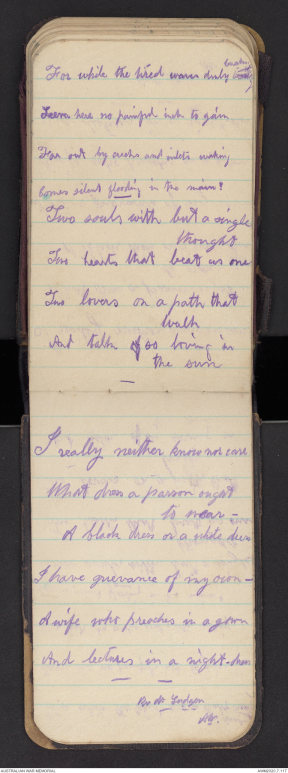 For while the tired waves dully
Seem here no painful inch to gain
For out by creeks and inlets making
Comes silent flooding in the main!
Two souls with but a single
thought
Two hearts that beat as one
Two lovers on a path that
walk
And talk so loving in
the sun
I really neither know nor care
What dress a parson ought
to wear –
A black dress or a white dress
I have grievance of my own –
A wife who preaches in a gown
And lectures in a night-dress
AUSTRALIAN WAR MEMORIAL